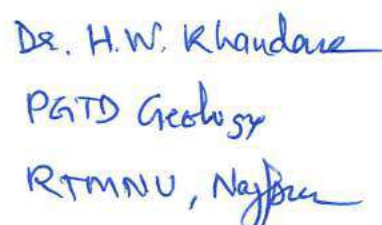 Dr. H.W. Khandare
PGTD Geology
RTMNU, Nagpur